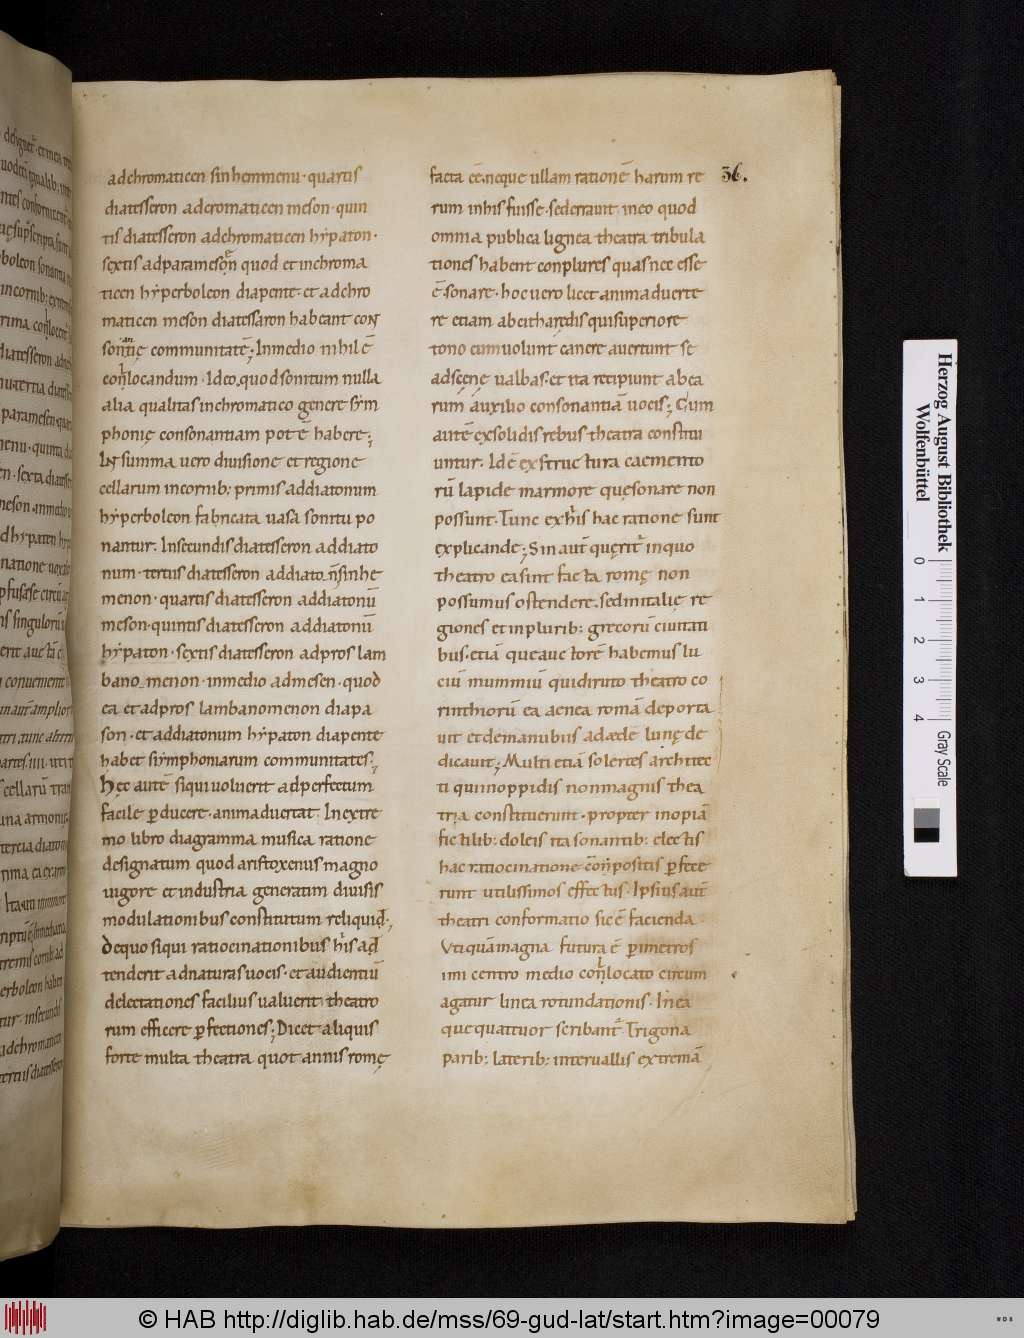 adchromaticen sinhemmenu · quartis
diatesseron adcromaticen meson · quin
tis diatesseron adchromaticen hẏpaton ·
sextis adparamesęn quod et inchroma
ticen hẏperboleon diapente · et adchro
maticen meson diatessaron habeant con
sonantię communitatē; Inmedio nihil ē
conlocandum · Ideo, quod sonitum nulla
alia qualitas inchromatico genere sẏm
phonię consonantiam pot ē habere;
In summa uero diuisione et regione
cellarum incornib; primis addiatonum
hẏperboleon fabricata uasa sonitu po
nantur. Insecundis diatesseron addiato
num · tertiis diatesseron addiato n̄ sinhe
menon · quartis diatesseron addiatonū
meson · quintis diatesseron addiatonū
hẏpaton · sextis diatesseron adpros lam
bano menon · inmedio admesen · quod
ea et adpros lambanomenon diapa
son · et addiatonum hẏpaton diapente
habet siẏmphoniarum communitates;
Hęc autē siqui uoluerit adperfectum
facile ꝑducere · animaduertat. Inextre
mo libro diagramma musica ratione
designatum quod aristoxenus magno
uigore et industria generatim diuisis
modulationibus constitutum reliquid;
dequo siqui ratiocinationibus his ad
tenderit adnaturas uocis · et audientiū
delectationes facilius ualuerit theatro
rum efficere ꝑfectiones; Dicet aliquis
forte multa theatra quot annis romę
facta eē · neque ullam rationē harum re
rum inhis fuisse · sederrauit. ineo quod
omnia publica lignea theatra tribula
tiones habent conplures quas nec esse
ē sonare · hoc uero licet animaduerte
re etiam abcitharędis quisuperiore
tono cum uolunt canere auertunt se
adscęnę ualbas · et ita recipiunt abea
rum auxilio consonantiā uocis; Cum
autē exsolidis rebus theatra constitu
untur. Id ē exstructura caemento
rū lapide marmore quęsonare non
possunt. Tunc exhis hac ratione sunt
explicande; Sin aut̄ quęrit̄ inquo
theatro ea sint facta romę non
possumus ostendere. sedinitalię re
giones et inplurib; grecorū ciuitati
bus · etiā que auctorē habemus lu
ciū mummiū quidiruto theatro co
rinthiorū ea aenea romā deporta
uit et demanubiis adaedē lunę de
dicauit; Multi etiā solertes architec
ti quinoppidis nonmagnis thea
tria constituerunt · propter inopiā
fictilib; doleis ita sonantib; electis
hac ratiocinatione conpositis ꝑfece
runt utilissimos effectus · Ipsius aut̄
theatri conformatio sic ē facienda
Vti quā magna futura ē ꝑimetros
imi centro medio conlocato circum
agatur linea rotundationis · In ea
que quattuor scribant̄. Trigona
parib; laterib; interuallis extremā
36.
Herzog August Bibliothek
Wolfenbüttel
0 1 2 3 4
Gray Scale
© HAB http://diglib.hab.de/mss/69-gud-lat/start.htm?image=00079